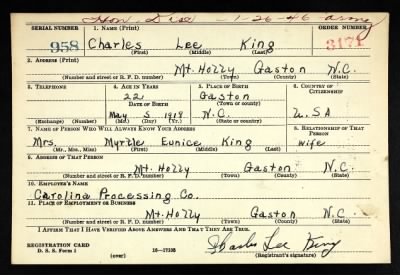 Hon Disc - 1-26-46 army
SERIAL NUMBER 1. NAME (Print) ORDER NUMBER
958 Charles Lee King 3171
(First) (Middle) (Last)
2. ADDRESS (Print)
Mt. Holly Gaston N.C.
(Number and street or R. F. D. number) (Town) (County) (State)
3. TELEPHONE 4. AGE IN YEARS 5. PLACE OF BIRTH 6. COUNTRY OF CITIZENSHIP
22 Gaston
DATE OF BIRTH (Town or county)
May 5 1918 N.C. U.SA
(Exchange) (Number) (Mo.) (Day) (Yr.) (State or country)
7. NAME OF PERSON WHO WILL ALWAYS KNOW YOUR ADDRESS 8. RELATIONSHIP OF THAT PERSON
Mrs. Myrtle Eunice King wife
(Mr., Mrs., Miss) (First) (Middle) (Last)
9. ADDRESS OF THAT PERSON
Mt. Holly Gaston N.C.
(Number and street or R. F. D. number) (Town) (County) (State)
10. EMPLOYER'S NAME
Carolina Processing Co.
11. PLACE OF EMPLOYMENT OR BUSINESS
Mt. Holly Gaston N.C.
(Number and street or R. F. D. number) (Town) (County) (State)
I AFFIRM THAT I HAVE VERIFIED ABOVE ANSWERS AND THAT THEY ARE TRUE.
REGISTRATION CARD
D. S. S. Form 1 (over) 16-17105 Charles Lee King
(Registrant's signature)